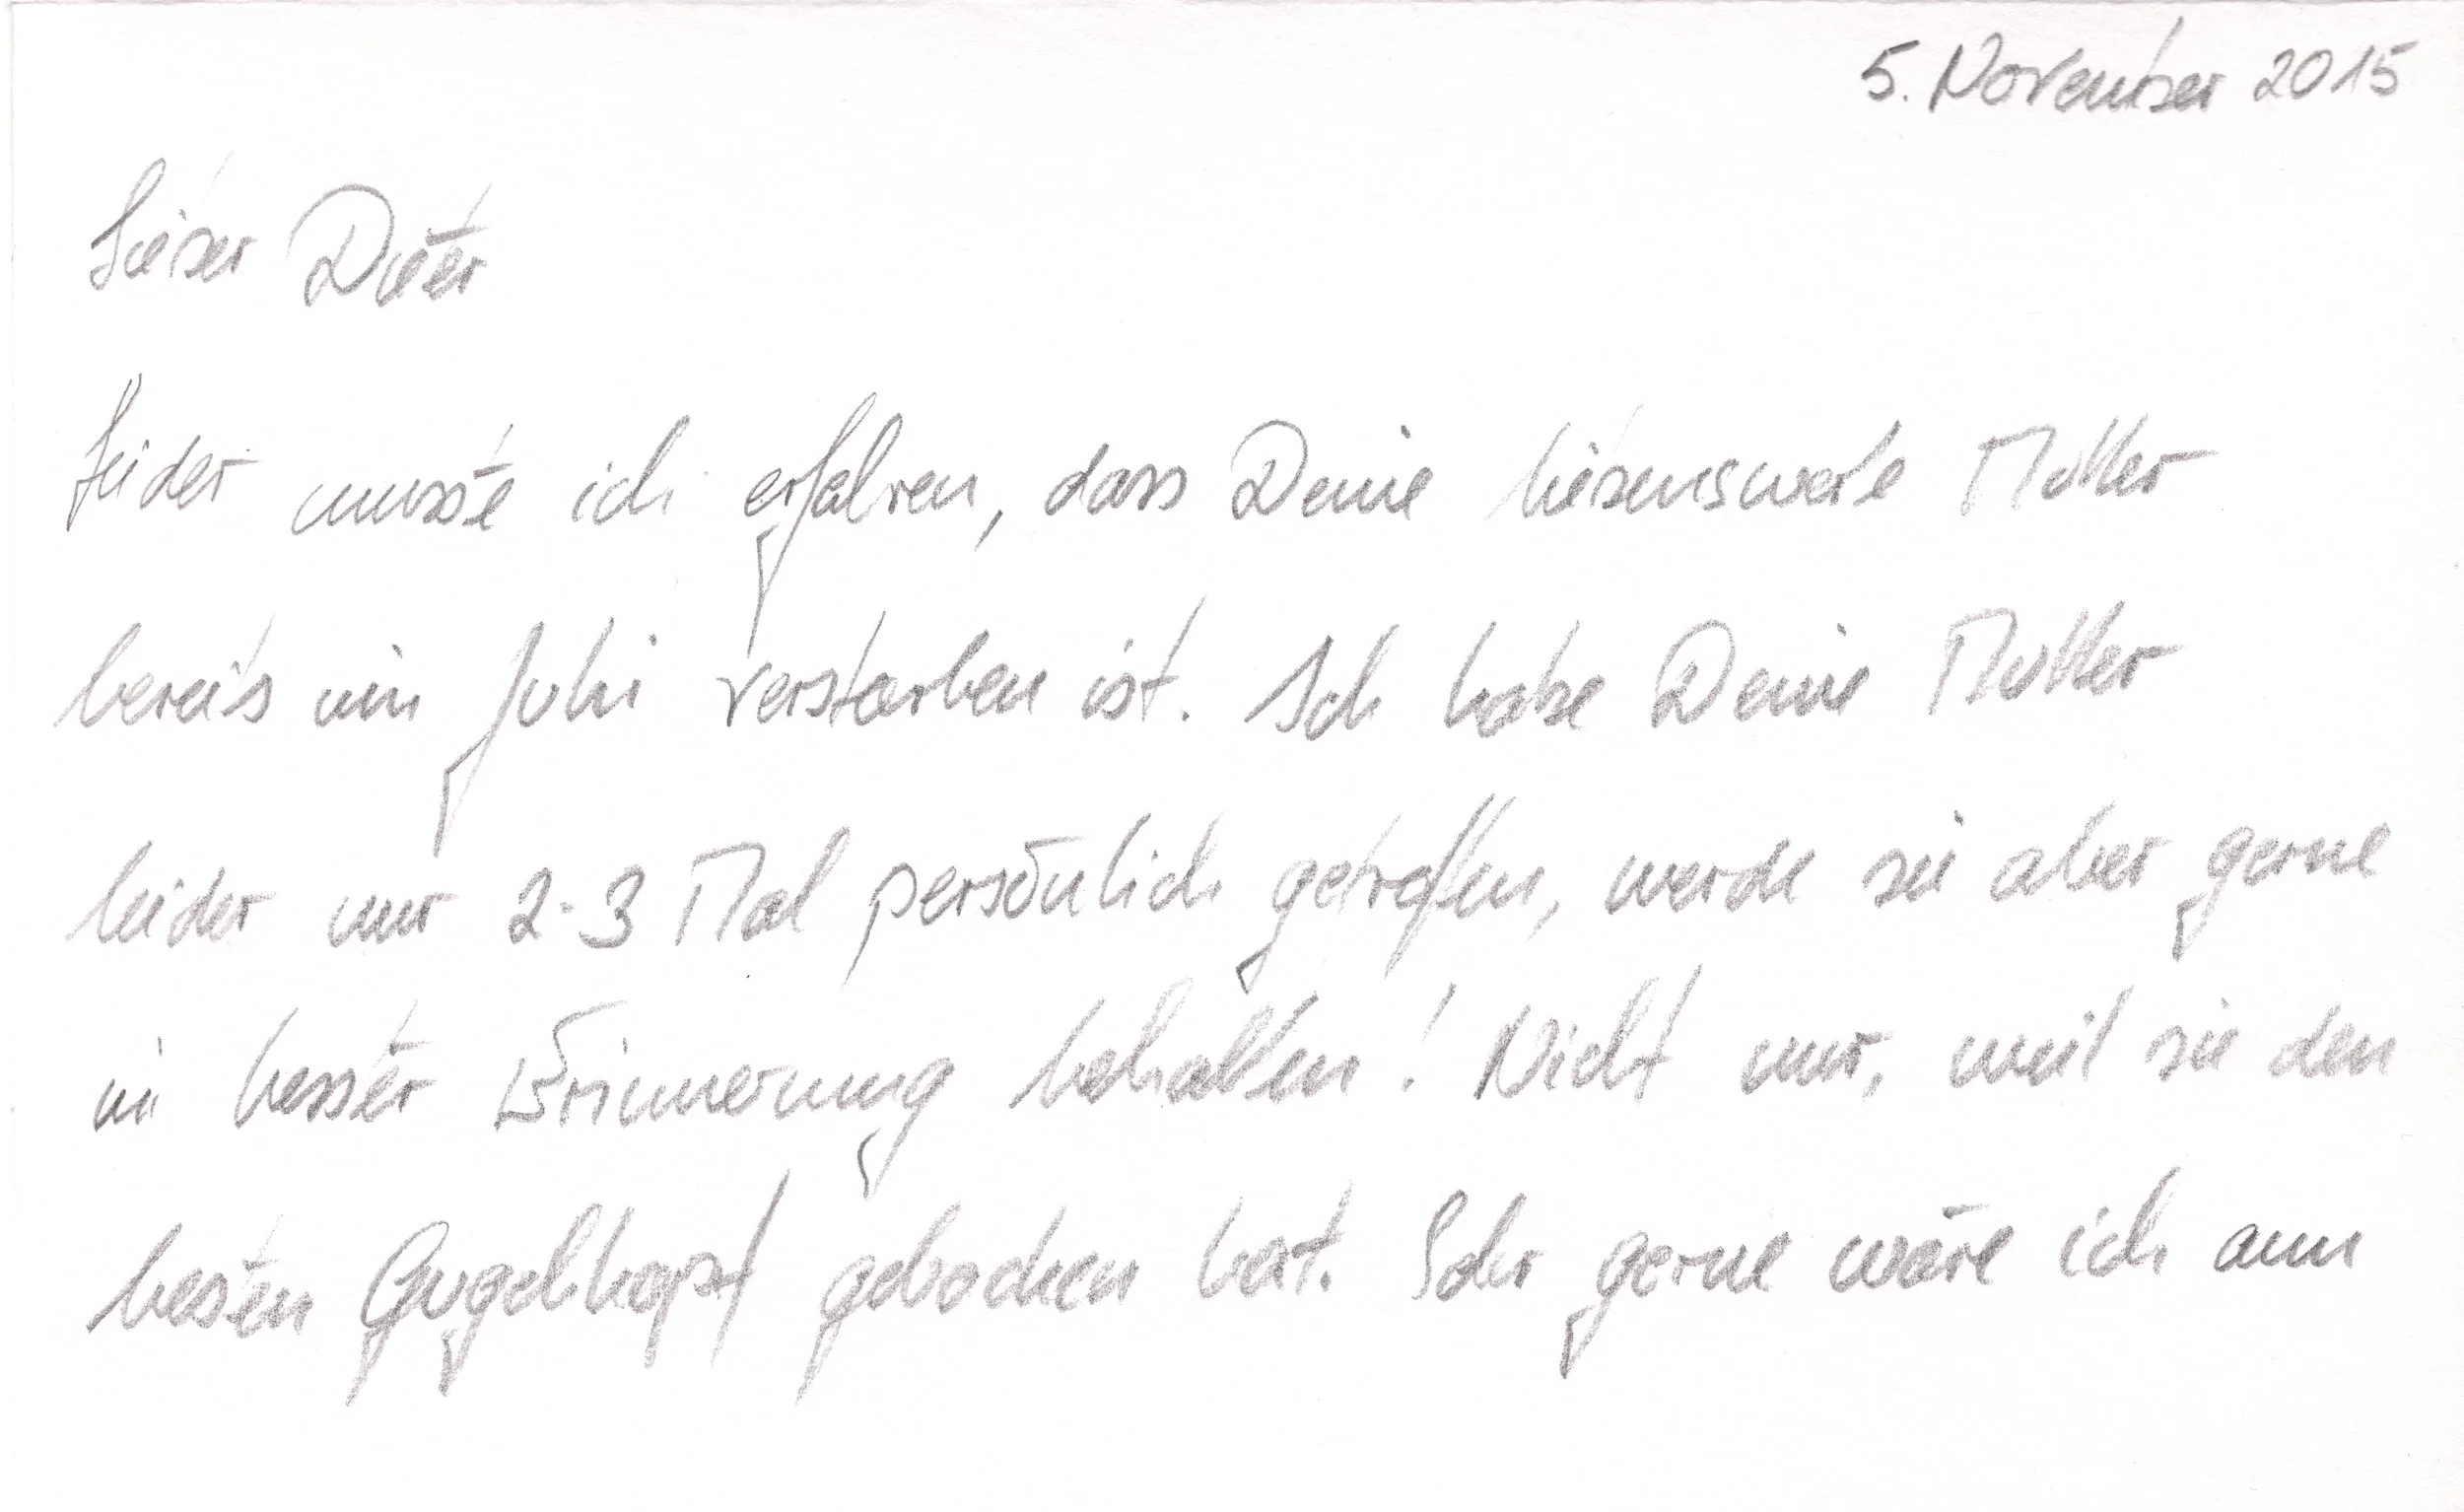 5. November 2015
Lieber Dieter
Leider musste ich erfahren, dass Deine liebenswerte Mutter
bereits im Juli verstorben ist. Ich habe Deine Mutter
leider nur 2-3 Mal persönlich getroffen, werde sie aber gerne
in bester Erinnerung behalten! Nicht nur, weil sie den
besten Gugelhopf gebacken hat. Sehr gerne wäre ich am